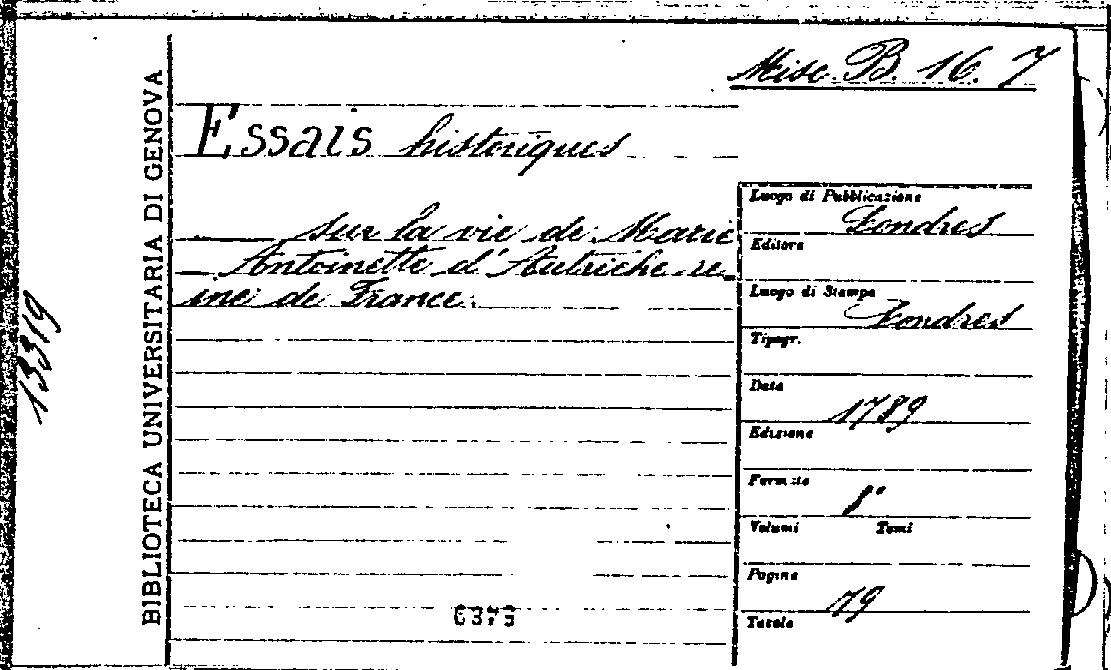 Misc. B. 16. 7
BIBLIOTECA UNIVERSITARIA DI GENOVA
13319
Essais historiques
sur la vie de Marie
Antoinette d'Autriche re_
ine de France.
Luogo di Pubblicazione
Londres
Editore
Luogo di Stampa
Londres
Tipogr.
Data
1789
Edizione
Formato
8°
Volumi Tomi
Pagine
79
Tavole
6373